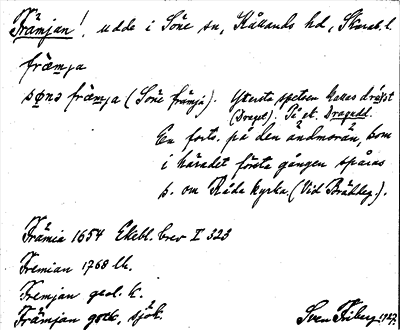 Främjan! udde i Söne sn, Kållands hd, Skarab. l.
fræmja
sønə fræmja (Söne främja). Yttersta spetsen kallas
(Draget). På ek. Dragudd.
En forts. på den ändmorän, som
i häradet första gången spåras
s. om Råda kyrka (Vid
Främia 1654 Ekebl. brev I 323
Fremian 1768 lk.
Fremjan geol. k.
Främjan gsk, sjök. Sven Friberg 1927.